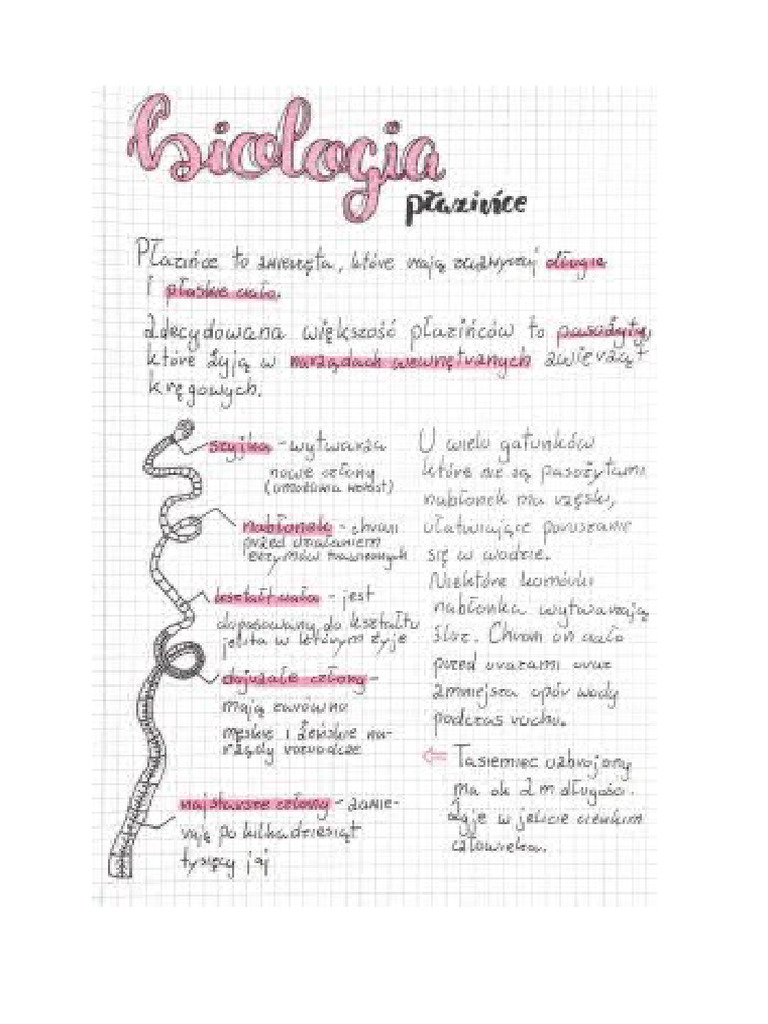 biologia
płazińce
Płazińce to zwierzęta, które mają zazwyczaj długie
i płaskie ciało.
Zdecydowana większość płazińców to pasożyty,
które żyją w narządach wewnętrznych zwierząt
kręgowych.
szyjka - wytwarza
nowe człony
(umożliwia wzrost)
nabłonek - chroni
przed działaniem
enzymów trawiennych
kształt ciała - jest
dopasowany do kształtu
jelita w którym żyje
dojrzałe człony -
mają zarówno
męskie i żeńskie na-
rządy rozrodcze
najstarsze człony - zawie-
rają po kilkadziesiąt
tysięcy jaj
U wielu gatunków
które nie są pasożytami
nabłonek ma rzęski,
ułatwiające poruszanie
się w wodzie.
Niektóre komórki
nabłonka wytwarzają
śluz. Chroni on ciało
przed urazami oraz
zmniejsza opór wody
podczas ruchu.
⇐ Tasiemiec uzbrojony
ma ok 2m długości.
Żyje w jelicie cienkim
człowieka.